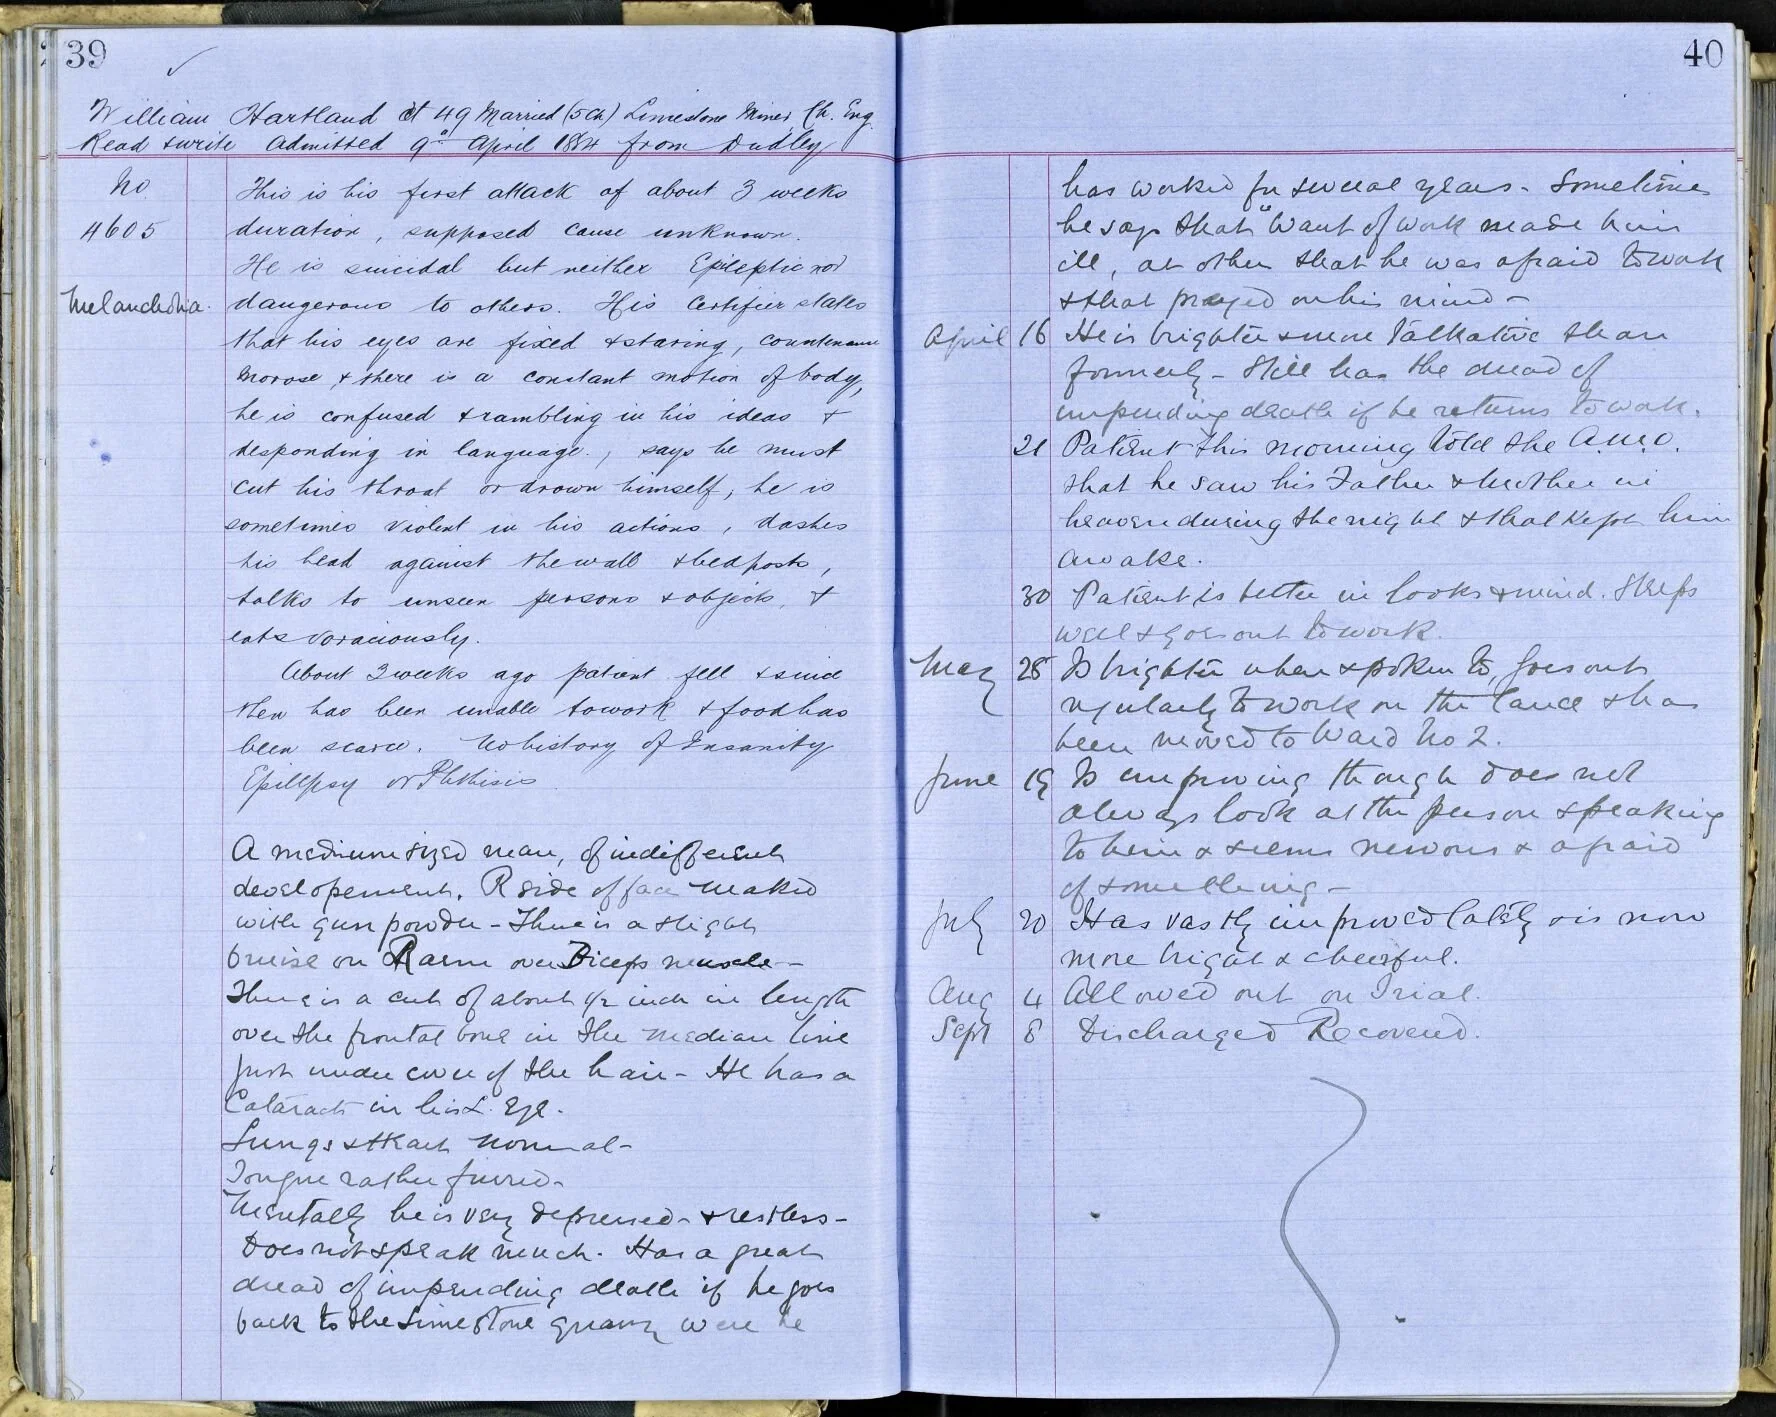 39
William Hartland æt 49 Married (5 Ch) Limestone Miner, Ch. Eng.
Read & write Admitted 9th April 1884 from Dudley
No.
4605
Melancholia.
This is his first attack of about 3 weeks
duration, supposed cause unknown.
He is suicidal but neither Epileptic nor
dangerous to others. His Certifier states
that his eyes are fixed & staring, countenance
morose & there is a constant motion of body,
he is confused & rambling in his ideas &
desponding in language, says he must
cut his throat or drown himself, he is
sometimes violent in his actions, dashes
his head against the wall & bedposts,
talks to unseen persons & objects, &
eats voraciously.
About 3 weeks ago patient fell & since
then has been unable to work & food has
been scarce. No history of Insanity
Epilepsy or Phthisis.
A medium sized man, of indifferent
developement. R side of face marked
with gun powder - There is a slight
bruise on R arm over Biceps muscle -
There is a cut of about 1/2 inch in length
over the frontal bone in the median line
just under cover of the hair - He has a
Cataract in his L. Eye.
Lungs & Heart normal -
Tongue rather furred -
Mentally he is very depressed - & restless -
Does not speak much. Has a great
dread of impending death if he goes
back to the Limestone quarry were he
40
has worked for several years - Sometimes
he says that "Want of work made him
ill, at other that he was afraid to work
& that preyed on his mind -
April 16 He is brighter & more talkative than
formerly - Still has the dread of
impending death if he returns to work.
21 Patient this morning told the A.M.O.
that he saw his Father & Mother in
heaven during the night & that kept him
awake.
30 Patient is better in looks & mind. Sleeps
well & goes out to work.
May 28 Is brighter when spoken to, goes out
regularly to work on the land & has
been moved to Ward No 2.
June 19 Is improving though does not
always look at the person speaking
to him & seems nervous & afraid
of something -
July 20 Has vastly improved lately & is now
more bright & cheerful.
Aug 4 Allowed out on Trial.
Sept 8 Discharged Recovered.